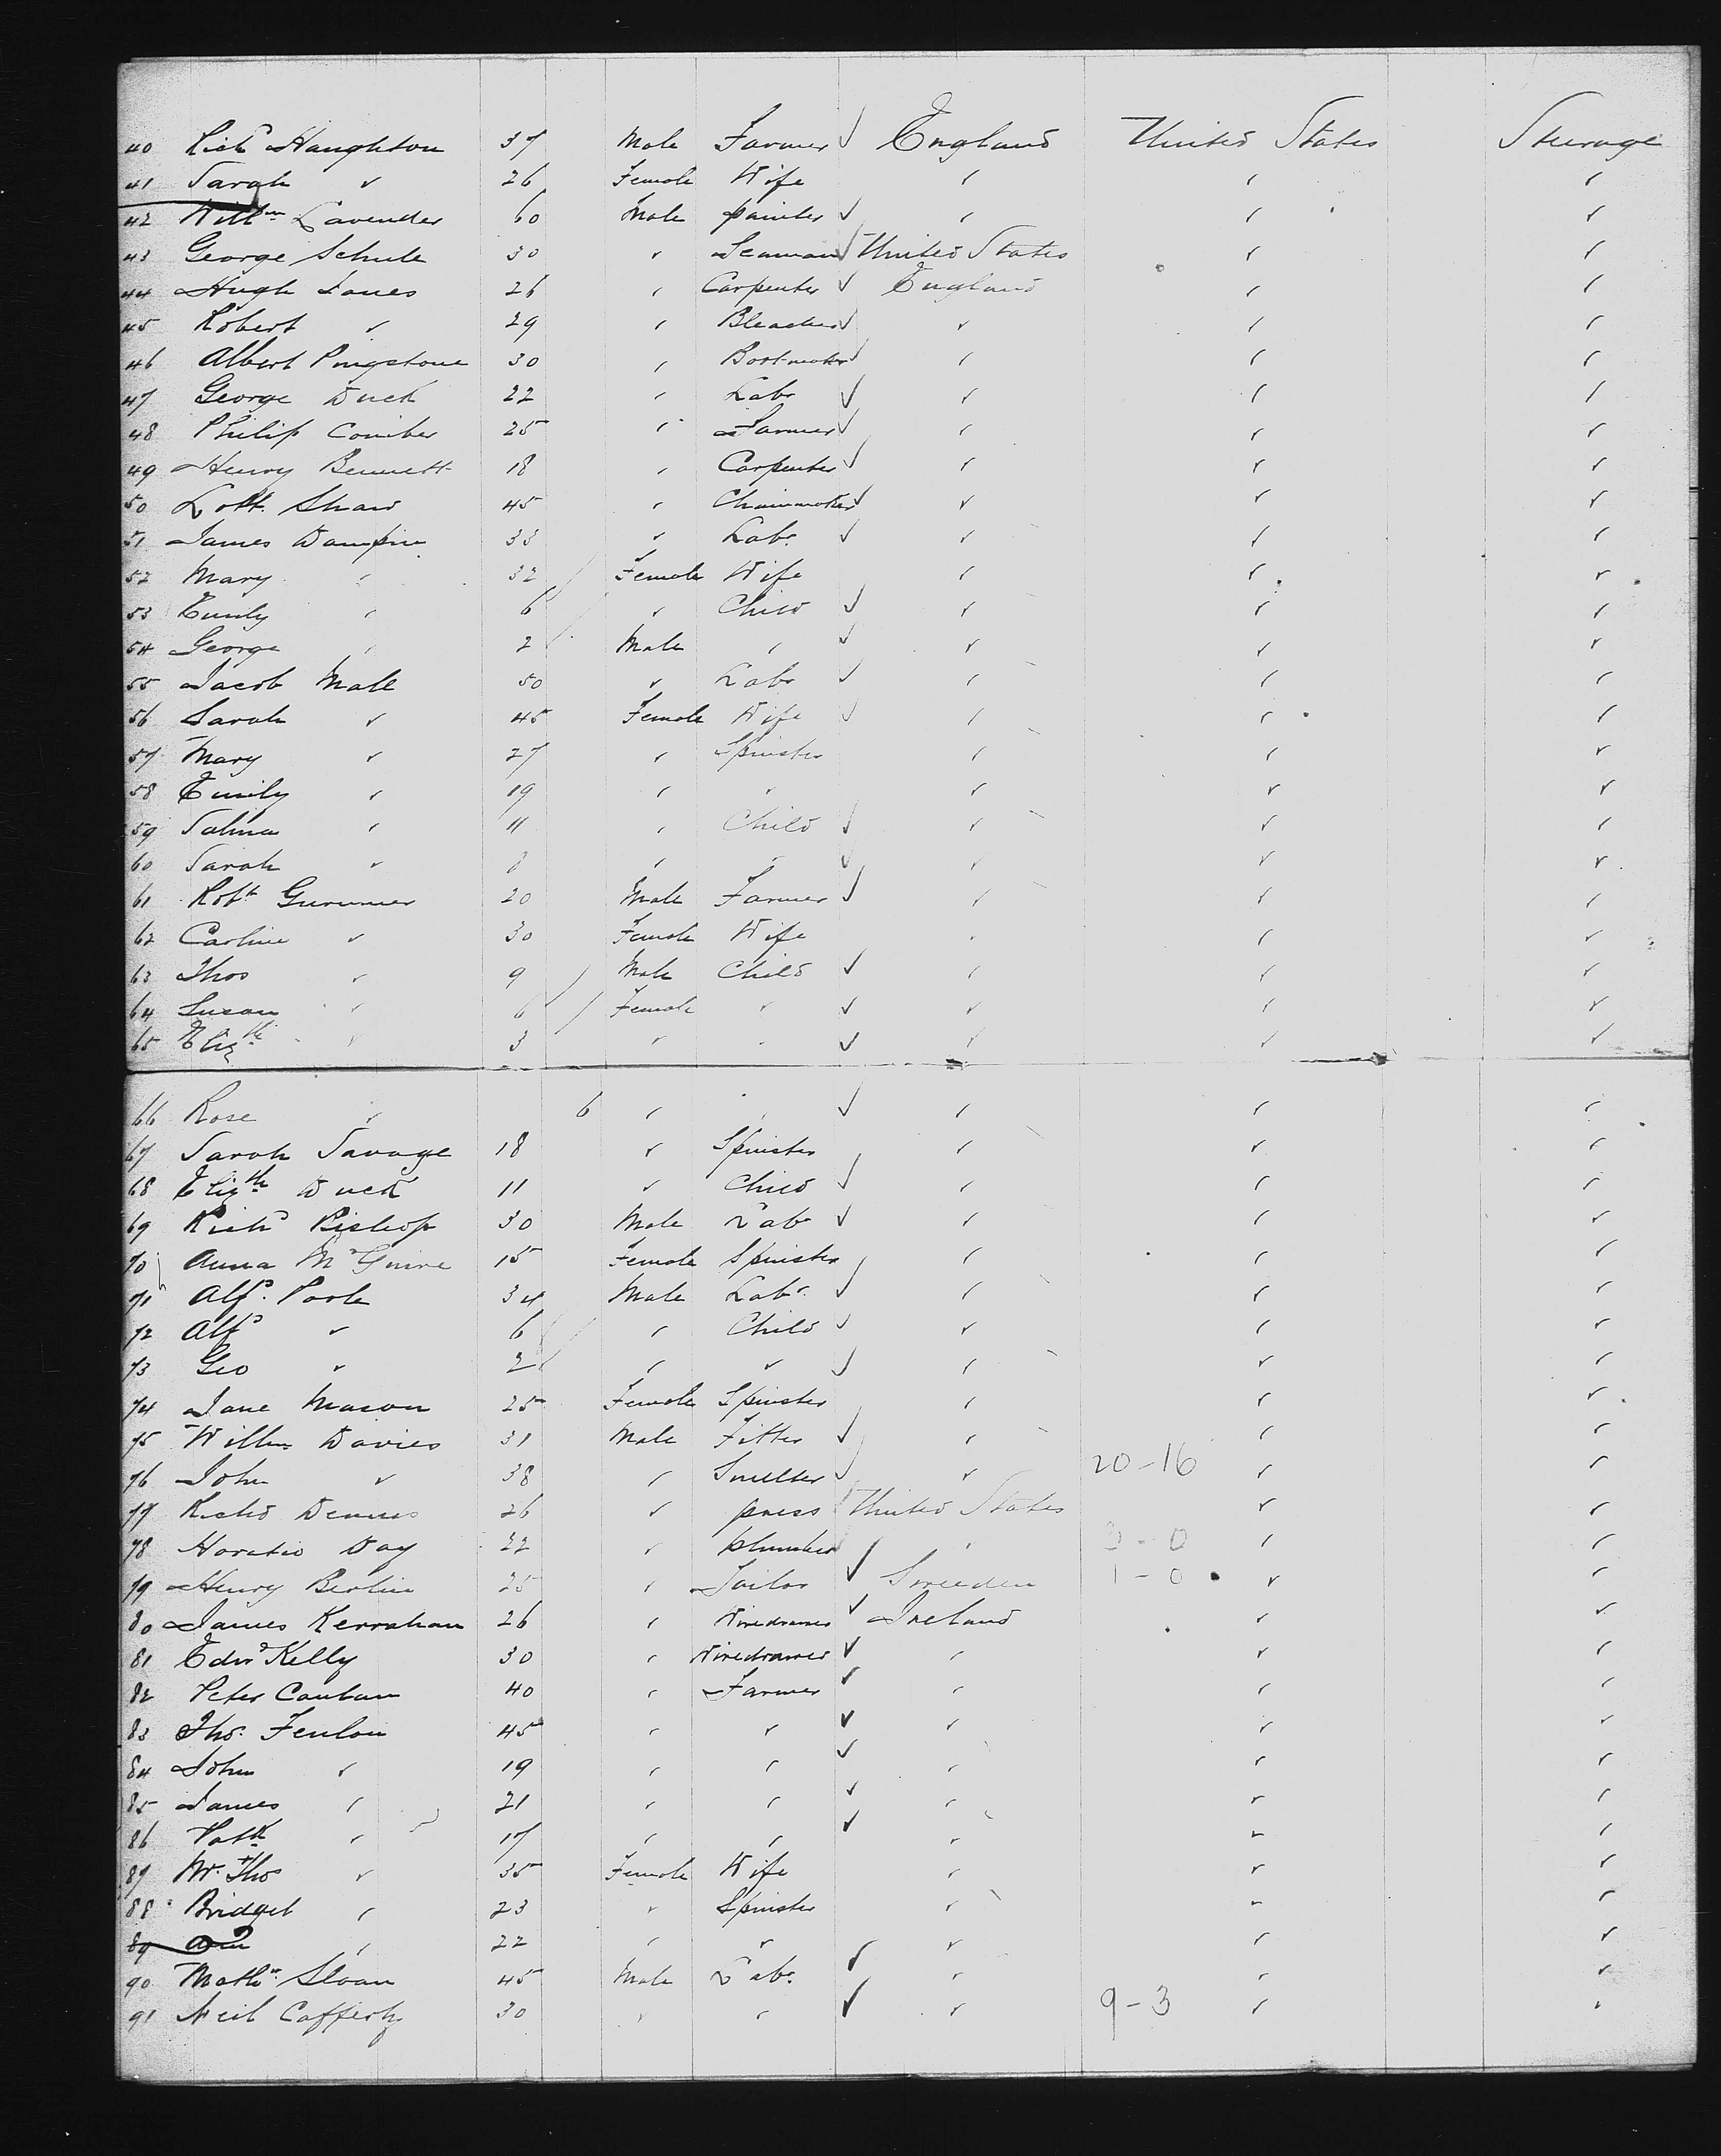 40 Richd Haughton 37 Male Farmer ✓ England United States Steerage
41 Sarah " 26 Female Wife " " "
42 Willm Lavender 60 Male painter ✓ " " "
43 George Schule 30 " Seaman ✓ United States " "
44 Hugh Jones 26 " Carpenter ✓ England " "
45 Robert " 29 " Bleacher ✓ " " "
46 Albert Pingstone 30 " Bootmaker ✓ " " "
47 George Duck 22 " Labr ✓ " " "
48 Philip Comber 25 " Farmer ✓ " " "
49 Henry Bennett 18 " Carpenter ✓ " " "
50 Lott. Shaw 45 " Chainmaker ✓ " " "
51 James Dampin 33 " Labr ✓ " " "
52 Mary " 32 Female Wife " " "
53 Emily " 6 " Child ✓ " " "
54 George " 2 Male " ✓ " " "
55 Jacob Male 50 " Labr ✓ " " "
56 Sarah " 45 Female Wife ✓ " " "
57 Mary " 27 " Spinster " " "
58 Emily " 19 " " " " "
59 Salina " 11 " Child ✓ " " "
60 Sarah " 8 " " ✓ " " "
61 Robt Gummer 20 Male Farmer ✓ " " "
62 Carline " 30 Female Wife " " "
63 Thos " 9 Male Child ✓ " " "
64 Susan " 6 Female " ✓ " " "
65 Elizth " 3 " " ✓ " " "
66 Rose " 6 " " ✓ " " "
67 Sarah Savage 18 " Spinster " " "
68 Elizth Duck 11 " Child ✓ " " "
69 Richd Bishop 30 Male Labr ✓ " " "
70 Anna McGuire 15 Female Spinster " " "
71 Alfd Poole 34 Male Labr ✓ " " "
72 Alfd " 6 " Child ✓ " " "
73 Geo " 2 " " ✓ " " "
74 Jane Mason 25 Female Spinster " " "
75 Willm Davies 31 Male Fitter ✓ " " "
76 John " 38 " Smelter ✓ " 20-16 " "
77 Richd Dennis 26 " press United States " "
78 Horatio Day 22 " plumber ✓ " 3-0 " "
79 Henry Berlin 25 " Tailor ✓ Sweeden 1-0 " "
80 James Kerrahan 26 " Wiredrawer ✓ Ireland " "
81 Edwd Kelly 30 " Wiredrawer ✓ " " "
82 Peter Canban 40 " Farmer ✓ " " "
83 Tho. Fenlon 45 " " ✓ " " "
84 John " 19 " " ✓ " " "
85 James " 21 " " ✓ " " "
86 Patk " 17 " " ✓ " " "
87 Mr. Tho " 35 Female Wife " " "
88 Bridget " 23 " Spinster " " "
89 Ann " 22 " " " " "
90 Mathw Sloan 45 Male Labr ✓ " " "
91 Neil Cafferty 30 " " ✓ " 9-3 " "